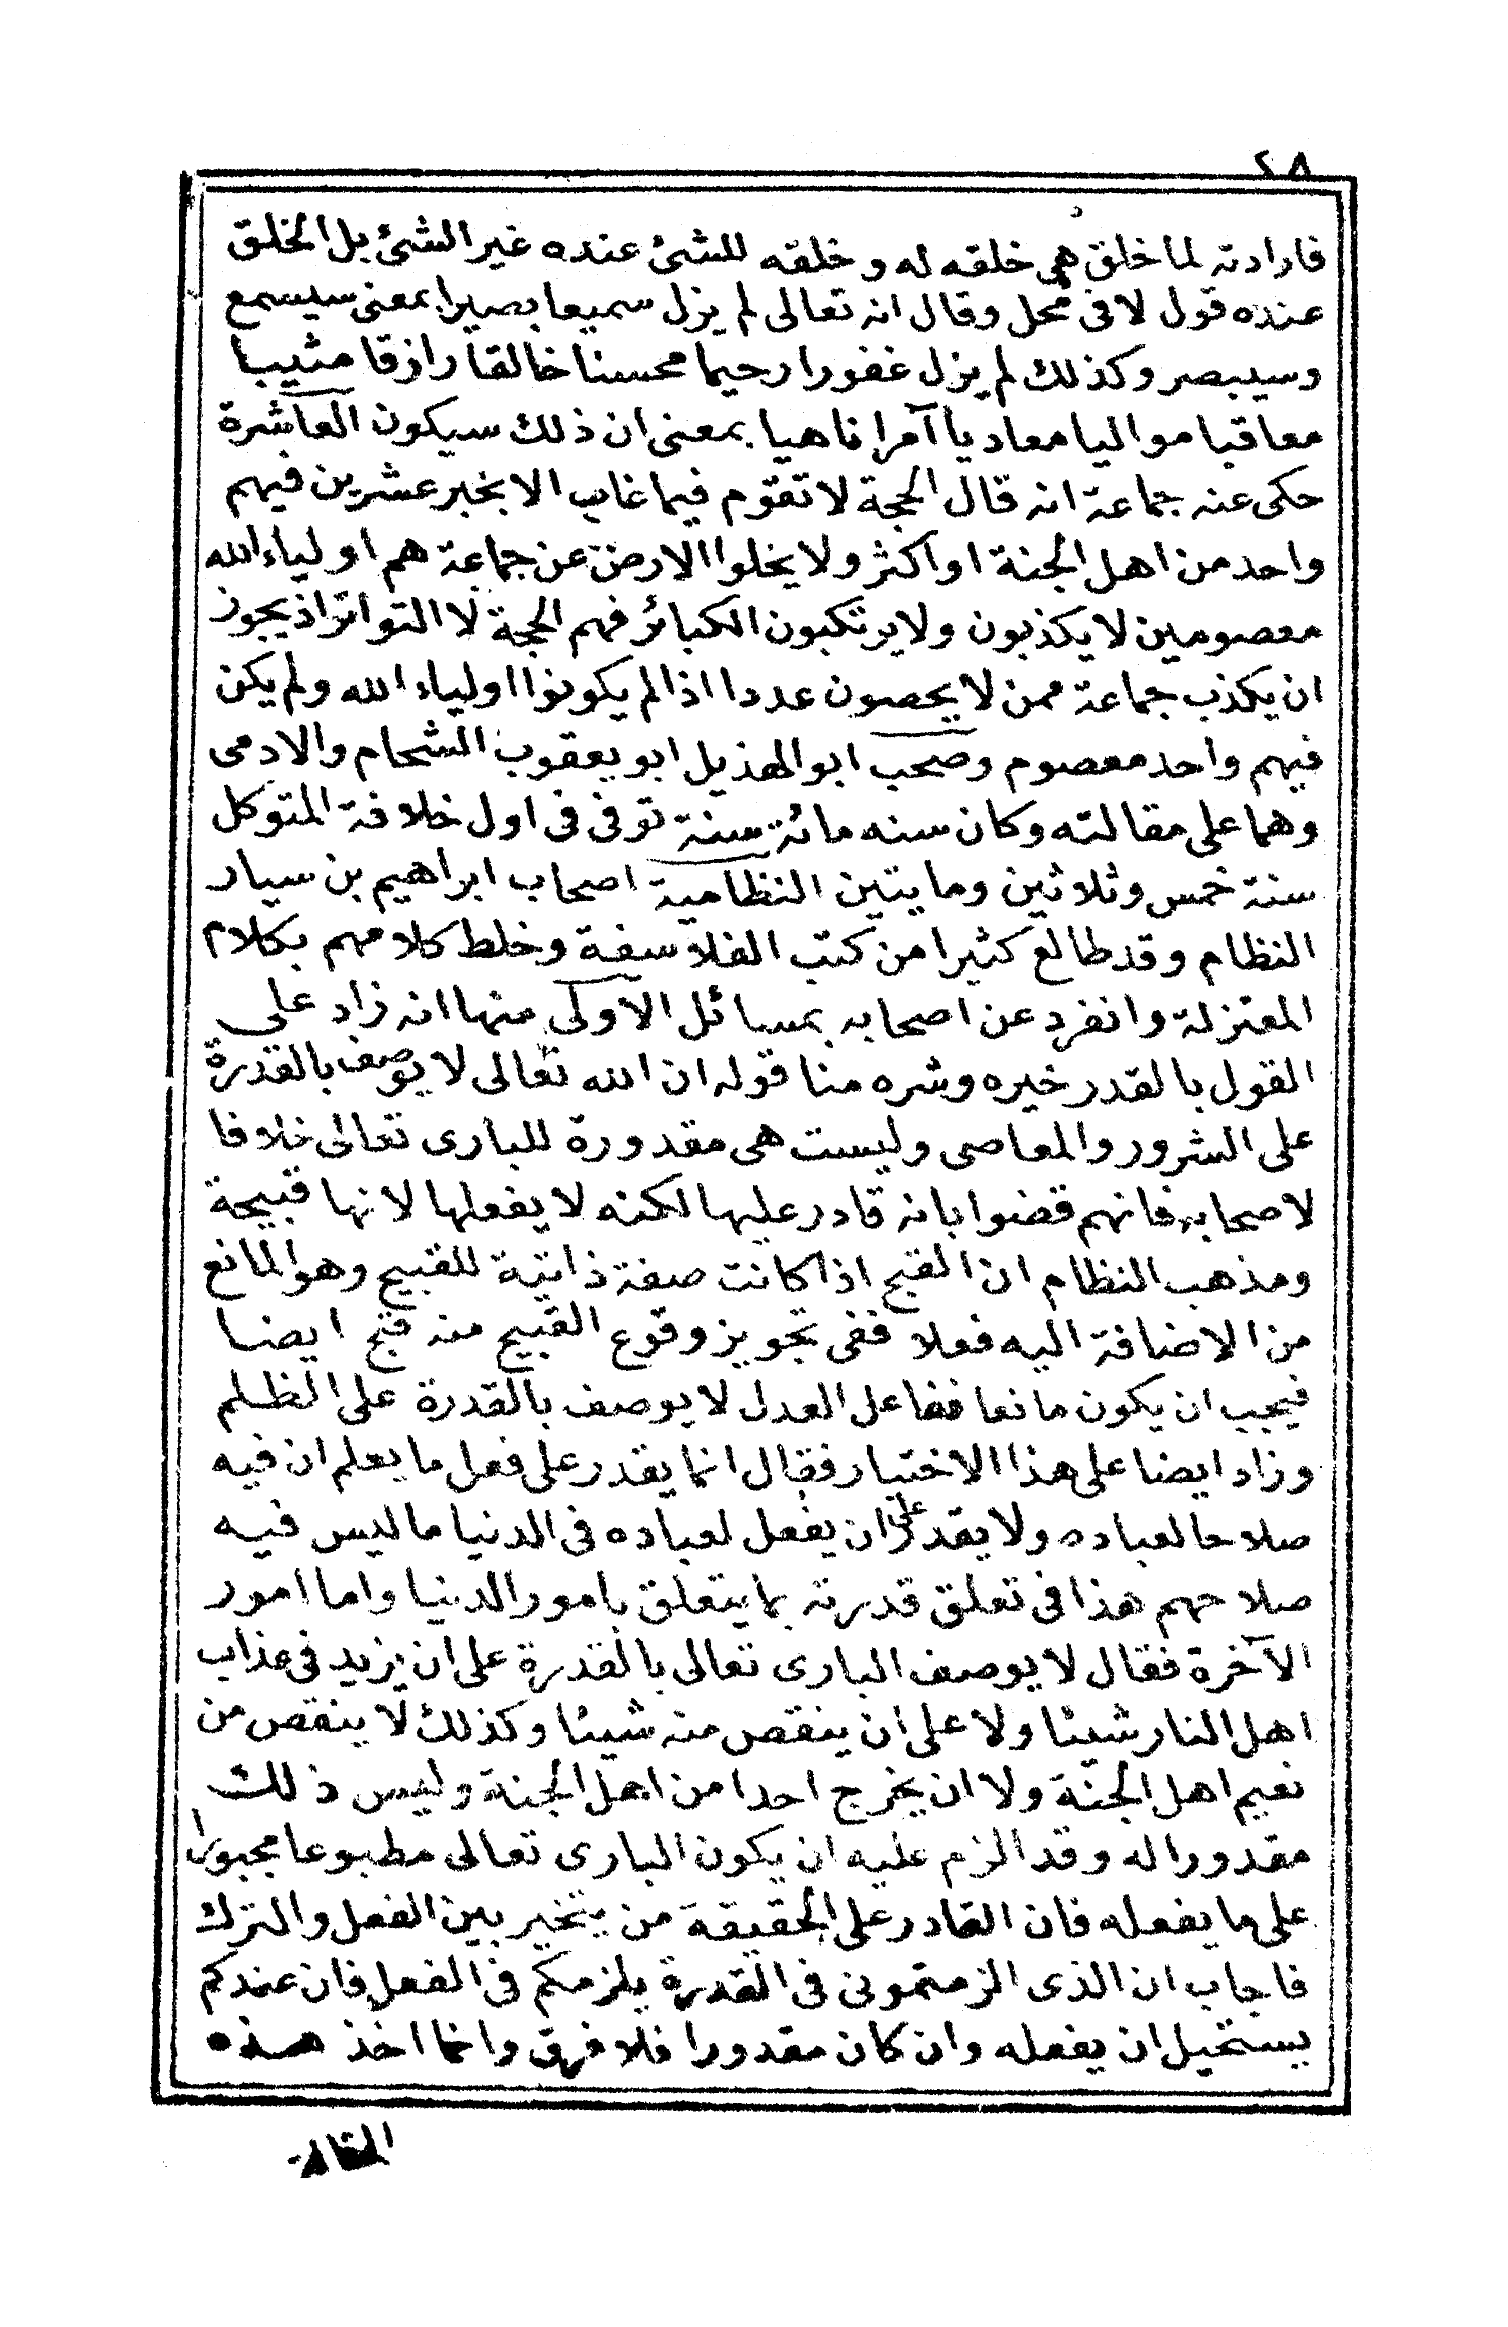 ٢٨
فارادته لما خلق هى خلقه له و خلقه للشئ عنده غير الشئ بل الخلق
عنده قول لا فى محل وقال انه تعالى لم يزل سميعا بصيرا بمعنى سيسمع
وسيبصر وكذلك لم يزل غفورا رحيما محسنا خالقا رازقا مثيبا
معاقبا مواليا معاديا آمرا ناهيا بمعنى ان ذلك سيكون العاشرة
حكى عنه جماعة انه قال الحجة لا تقوم فيما غاب الا بخبر عشرين فيهم
واحد من اهل الجنة او اكثر ولا يخلوا الارض عن جماعة هم اولياء الله
معصومين لا يكذبون ولا يرتكبون الكبائر فهم الحجة لا التواتر اذ يجوز
ان يكذب جماعة ممن لا يحصون عددا اذا لم يكونوا اولياء الله ولم يكن
فيهم واحد معصوم وصحب ابو الهذيل ابو يعقوب الشحام والادمى
وهما على مقالته وكان سنه مائة سنة توفى فى اول خلافة المتوكل
سنة خمس وثلاثين ومايتين النظامية اصحاب ابراهيم بن سيار
النظام وقد طالع كثيرا من كتب الفلاسفة وخلط كلامهم بكلام
المعتزلة وانفرد عن اصحابه بمسائل الاولى منها انه زاد على
القول بالقدر خيره وشره منا قوله ان الله تعالى لا يوصف بالقدرة
على الشرور والمعاصى وليست هى مقدورة للبارى تعالى خلافا
لاصحابه فانهم قضوا بانه قادر عليها لكنه لا يفعلها لانها قبيحة
ومذهب النظام ان القبح اذا كانت صفة ذاتية للقبيح وهو المانع
من الاضافة اليه فعلا ففى تجويز وقوع القبيح منه قبح ايضا
فيجب ان يكون مانعا ففاعل العدل لا يوصف بالقدرة على الظلم
وزاد ايضا على هذا الاختيار فقال انما يقدر على فعل ما يعلم ان فيه
صلاحا لعباده ولا يقدر على ان يفعل لعباده فى الدنيا ما ليس فيه
صلاحهم هذا فى تعلق قدرته بما يتعلق بامور الدنيا واما امور
الآخرة فقال لا يوصف البارى تعالى بالقدرة على ان يزيد فى عذاب
اهل النار شيئا ولا على ان ينقص منه شيئا وكذلك لا ينقص من
نعيم اهل الجنة ولا ان يخرج احدا من اهل الجنة وليس ذلك
مقدورا له وقد الزم عليه ان يكون البارى تعالى مطبوعا مجبورا
على ما يفعله فان القادر على الحقيقة من يتخير بين الفعل والترك
فاجاب ان الذى الزمتمونى فى القدرة يلزمكم فى الفعل فان عندكم
يستحيل ان يفعله وان كان مقدورا فلا فرق وانما اخذ هذه
المقالة